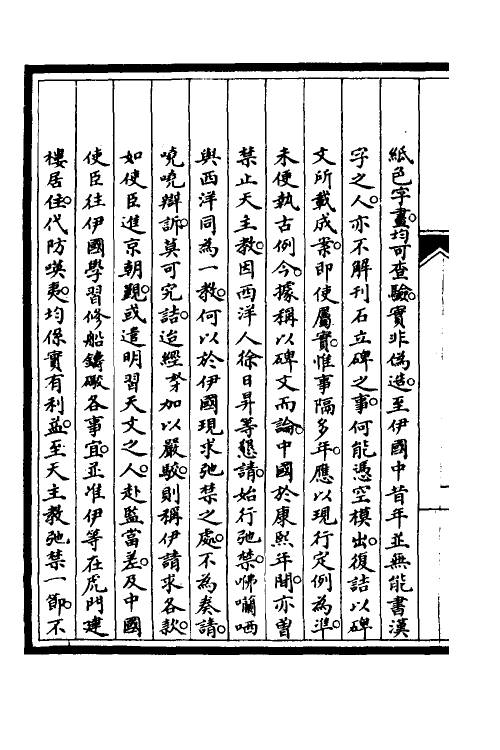 紙色字畫。均可查驗。實非偽造。至伊國中昔年並無能書漢
字之人。亦不解刊石立碑之事。何能憑空模出。復詰以碑
文所載成案。即使屬實。惟事隔多年。應以現行定例為準。
未便執古例今。據稱以碑文而論。中國於康熙年間。亦曾
禁止天主教。因西洋人徐日昇等懇請。始行弛禁。咈囒哂
與西洋同為一教。何以於伊國現求弛禁之處。不為奏請。
嘵嘵辯訴。莫可究詰。迨經等加以嚴駁。則稱伊請求各款。
如使臣進京朝覲。或遣明習天文之人。赴監當差。及中國
使臣往伊國學習修船鑄礮各事宜。並准伊等在虎門建
樓居住。代防𠸄夷。均係實有利益。至天主教弛禁一節。不